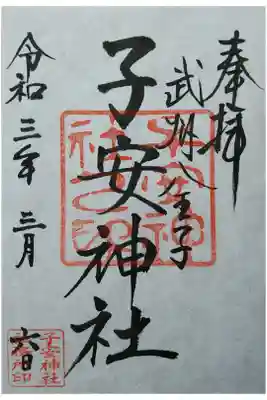 奉拝
武州八王子
子安神社
令和三年三月
六日
子安神社